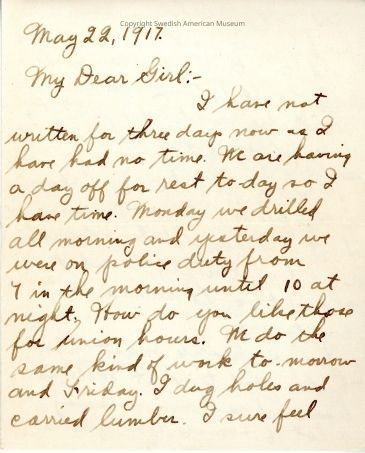 Copyright Swedish American Museum
May 22, 1917.
My Dear Girl:-
I have not
written for three days now as I
have had no time. We are having
a day off for rest to-day so I
have time. Monday we drilled
all morning and yesterday we
were on police duty from
7 in the morning until 10 at
night. How do you like those
for union hours. We do the
same kind of work to-morrow
and Friday. I dug holes and
carried lumber. I sure feel